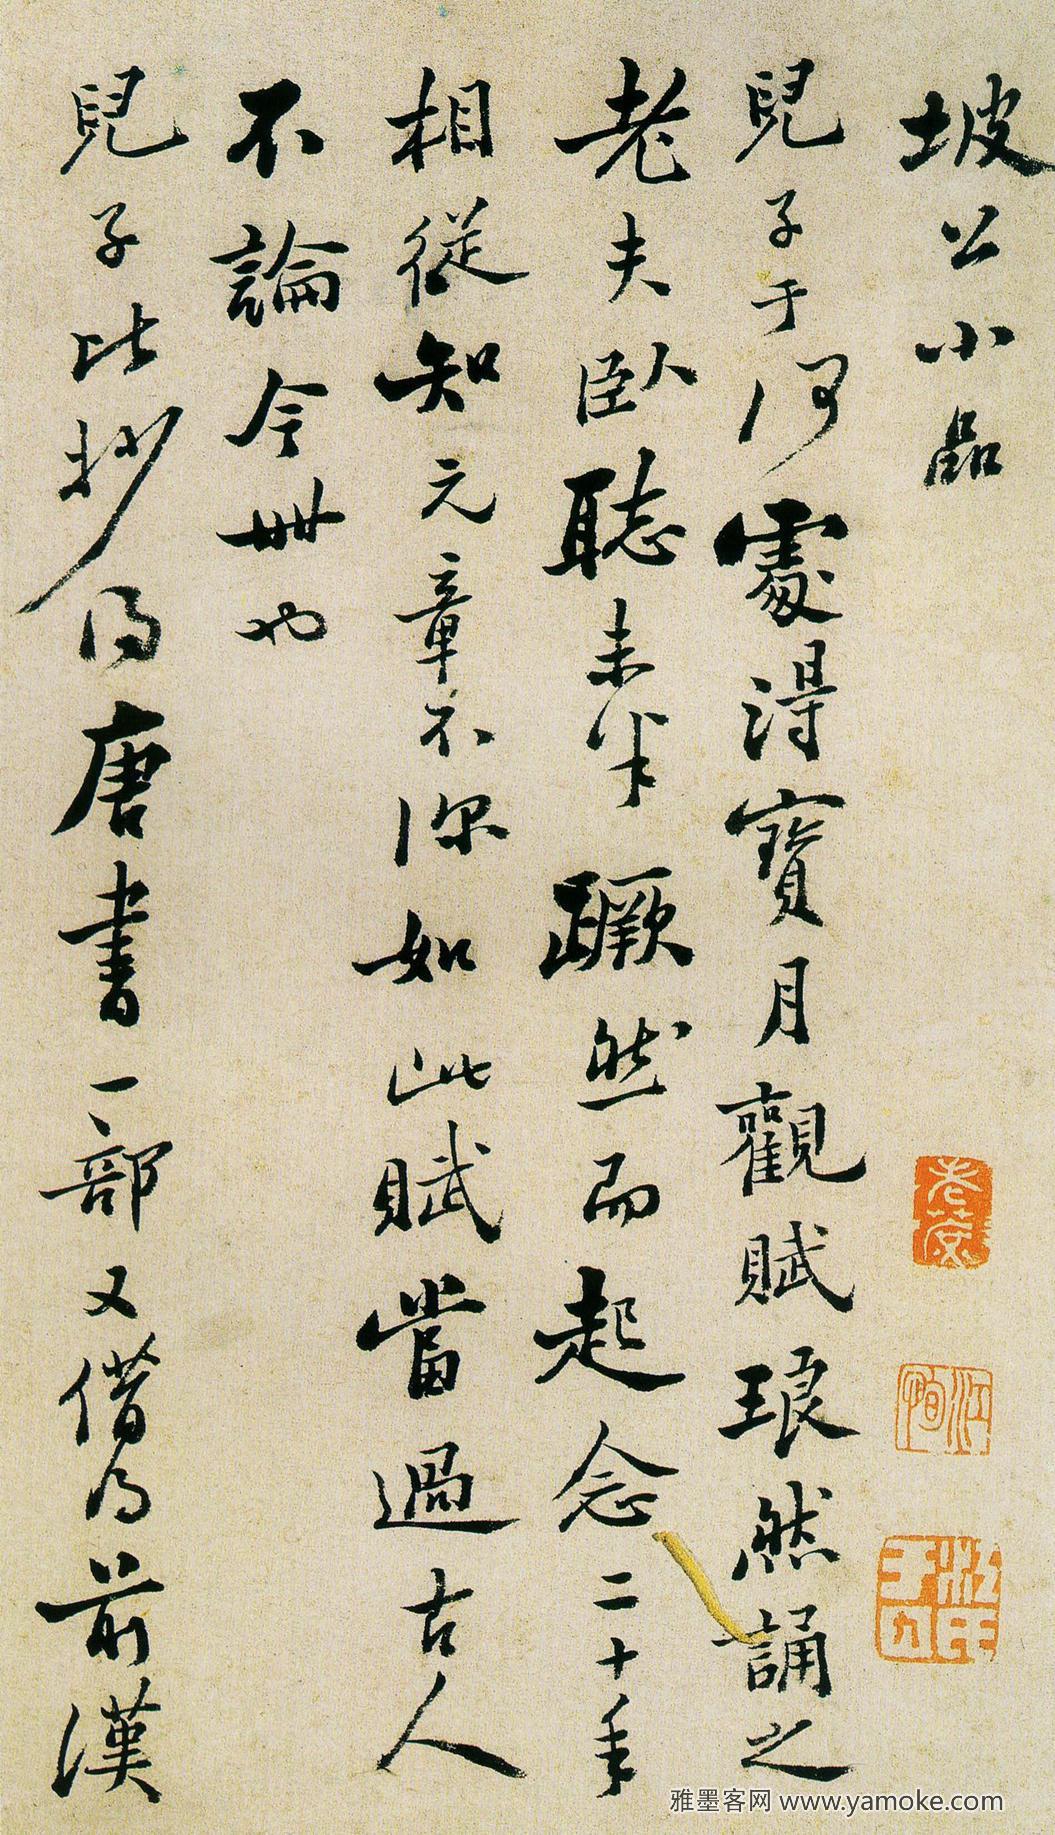 坡公小品
兒子于何處得寶月觀賦琅然誦之
老夫臥聽未半蹶然而起念二十年
相從知元章不深如此賦當過古人
不論今世也
兒子比抄得唐書一部又借得前漢
雅墨客网 www.yamoke.com